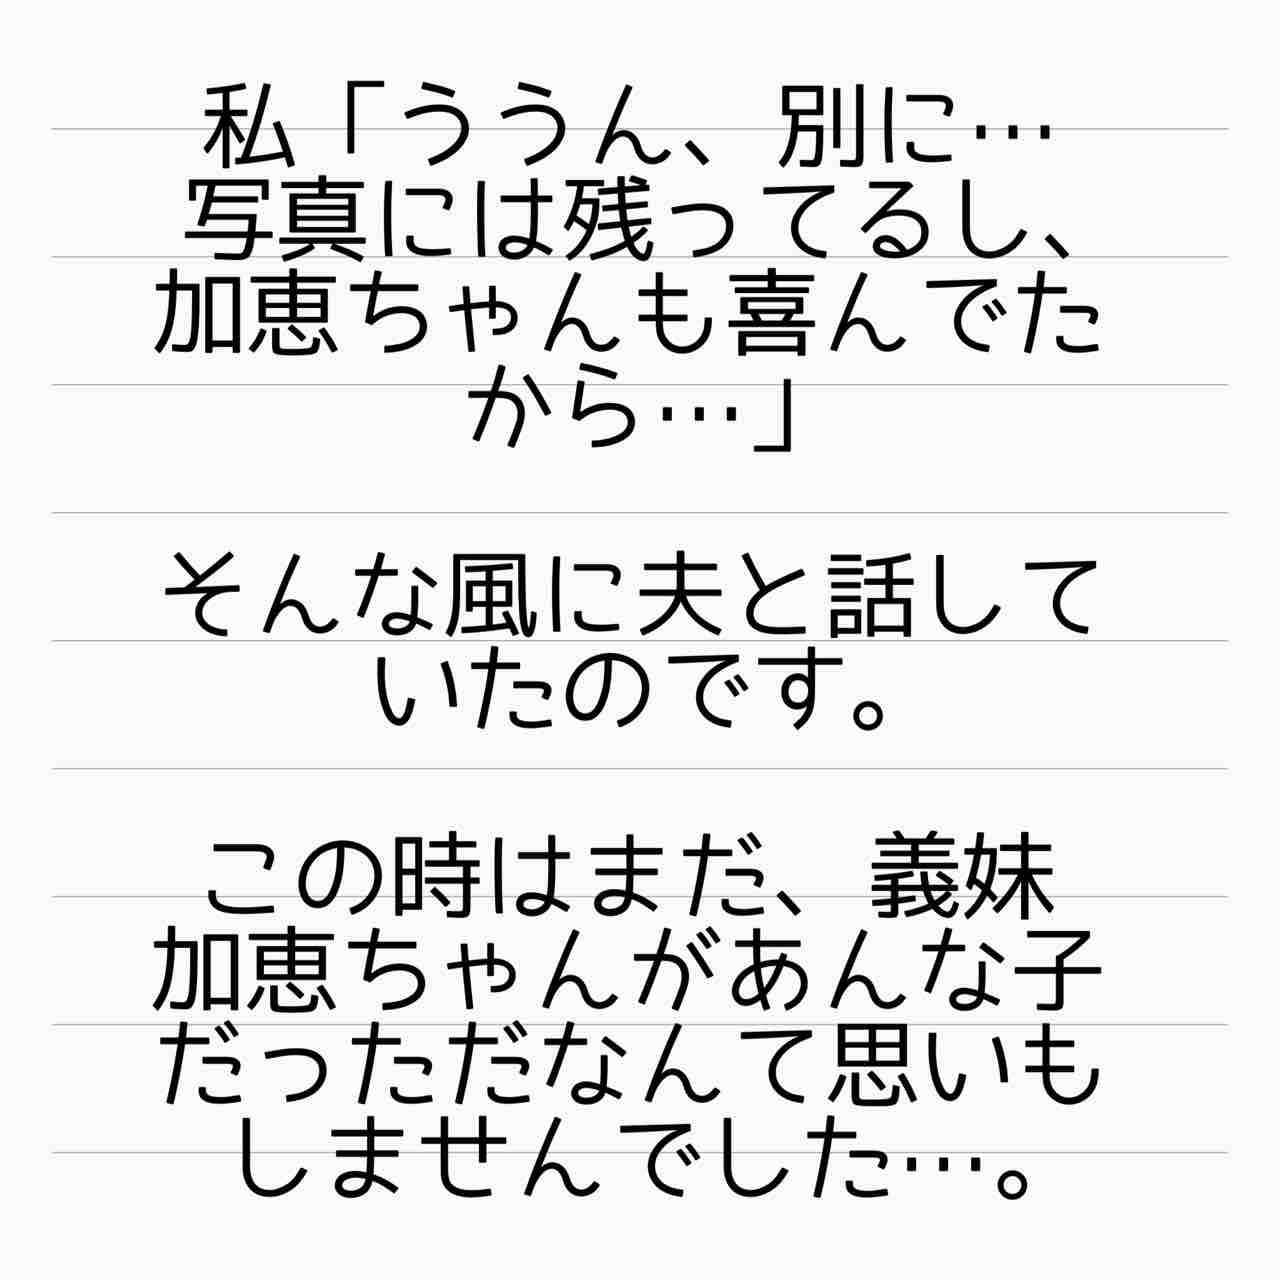 私「ううん、別に…
写真には残ってるし、
加恵ちゃんも喜んでた
から…」
そんな風に夫と話して
いたのです。
この時はまだ、義妹
加恵ちゃんがあんな子
だっただなんて思いも
しませんでした…。